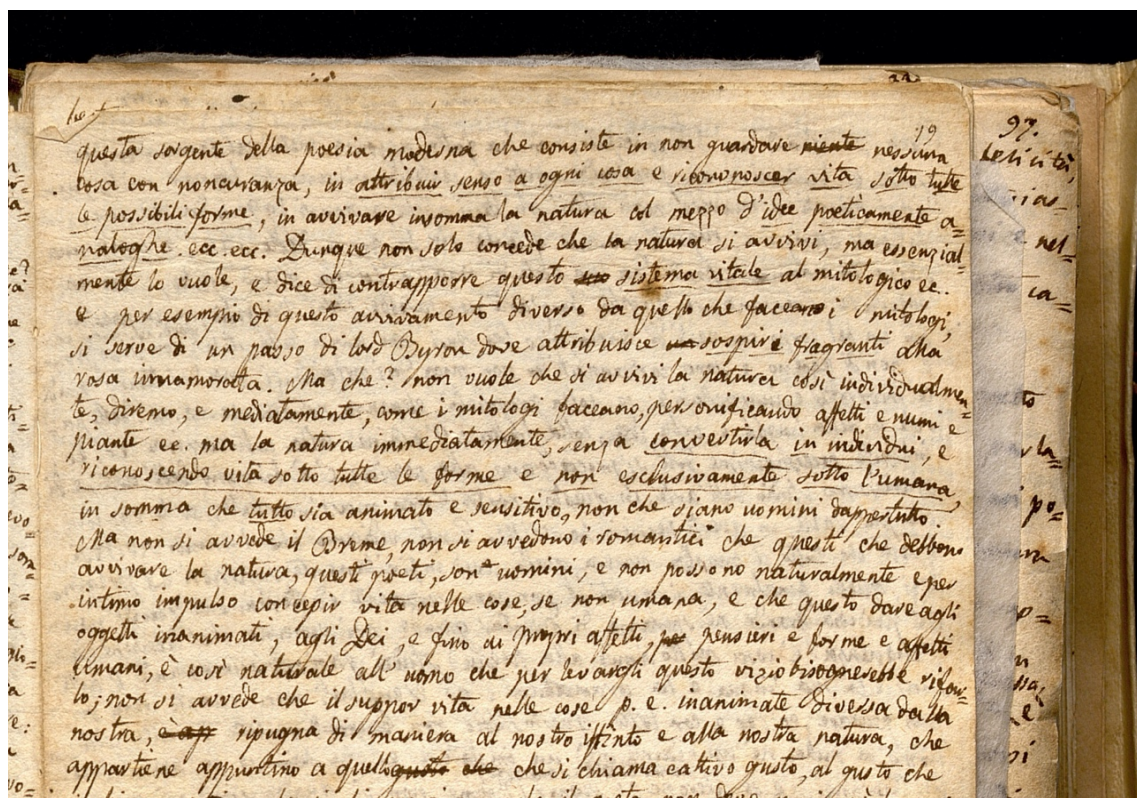 19
questa sorgente della poesia moderna che consiste in non guardare niente nessuna
cosa con noncuranza, in attribuir senso a ogni cosa e riconoscer vita sotto tutte
le possibili forme, in avvivare insomma la natura col mezzo d'idee poeticamente a=
naloghe. ecc. ecc. Dunque non solo concede che la natura si avvivi, ma essenzial=
mente lo vuole, e dice di contrapporre questo sistema vitale al mitologico ec.
e per esempio di questo avvivamento diverso da quello che faceano i mitologi,
si serve di un passo di lord Byron dove attribuisce sospiri fragranti alla
rosa innamorata. Ma che? non vuole che si avvivi la natura così individualmen=
te, diremo, e mediatamente, come i mitologi faceano, personificando affetti e numi e
piante ec. ma la natura immediatamente, senza convertirla in individui, e
riconoscendo vita sotto tutte le forme e non esclusivamente sotto l'umana,
in somma che tutto sia animato e sensitivo, non che siano uomini dappertutto.
Ma non si avvede il Breme, non si avvedono i romantici che questi che debbono
avvivare la natura, questi poeti, sono uomini, e non possono naturalmente e per
intimo impulso concepir vita nelle cose, se non umana, e che questo dare agli
oggetti inanimati, agli Dei, e fino ai propri affetti, pensieri e forme e affetti
umani, è così naturale all'uomo che per levargli questo vizio bisognerebbe rifar=
lo; non si avvede che il suppor vita nelle cose p. e. inanimate diversa dalla
nostra, ripugna di maniera al nostro istinto e alla nostra natura, che
appartiene appuntino a quello gusto che che si chiama cattivo gusto, al gusto che
97.
felicità,
nel=
ca=
to
po=